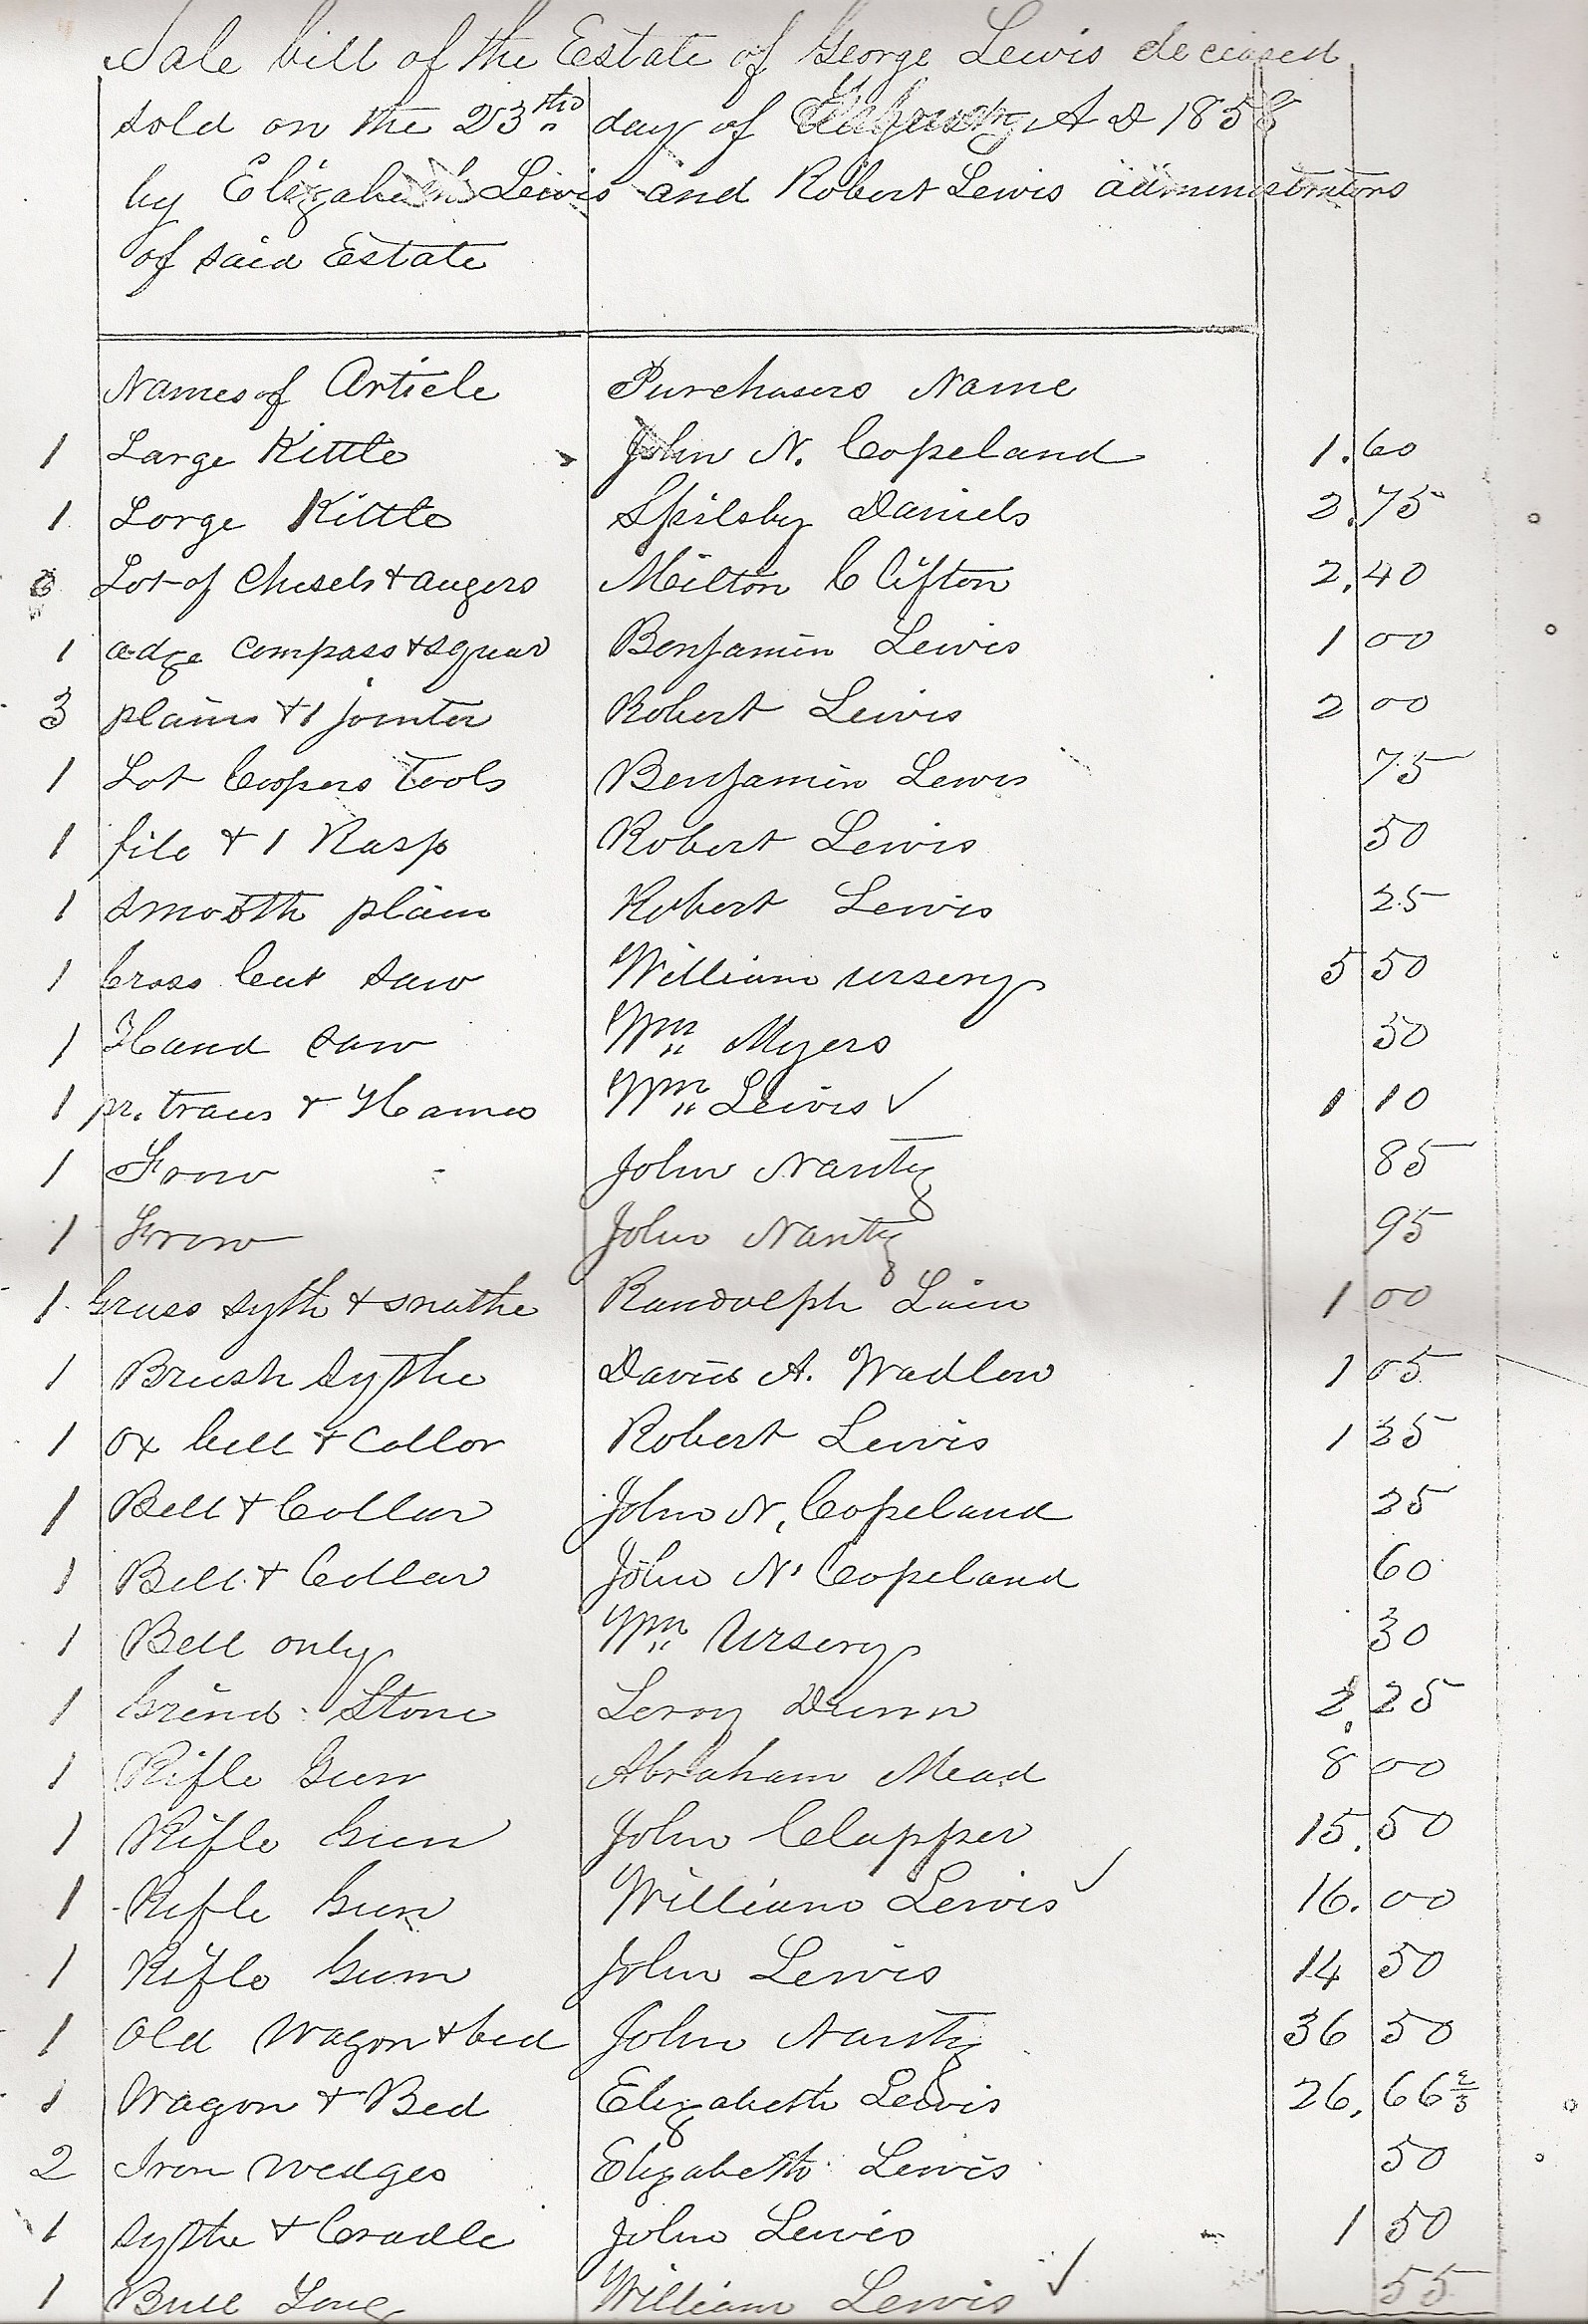 Sale bill of the Estate of George Lewis deceased
sold on the 23rd day of A D 1858
by Elizabeth Lewis and Robert Lewis administrators
of said Estate
Names of Article Purchasers Name
1 Large Kittle John N. Copeland 1.60
1 Lorge Kittle Spilsby Daniels 2.75
Lot of Chisels & augers Milton Clifton 2.40
1 adge compass & squar Benjamin Lewis 1 00
3 plains & 1 jointer Robert Lewis 2 00
1 Lot Coopers Tools Benjamin Lewis 75
1 file & 1 Rasp Robert Lewis 50
1 smooth plain Robert Lewis 25
1 Cross Cut saw William Ursery 5 50
1 Hand saw Wm Myers 50
1 pr. traces & Hames Wm Lewis ✓ 1 10
1 Frow John Nantz 85
1 Frow John Nantz 95
1 Grass syth & snathe Randolph Lain 1 00
1 Brush Sythe David A. Wadlow 1 05
1 Ox bell & Collor Robert Lewis 1 35
1 Bell & Collar John N. Copeland 25
1 Bell & Collar John N. Copeland 60
1 Bell only Wm Ursery 30
1 Grind Stone Leroy Dunn 2.25
1 Rifle Gun Abraham Mead 8 00
1 Rifle Gun John Clapper 15.50
1 Rifle Gun William Lewis ✓ 16.00
1 Rifle Gun John Lewis 14 50
1 Old Wagon & bed John Nantz 36 50
1 Wagon & Bed Elizabeth Lewis 26,66 2/3
2 Iron Wedges Elizabeth Lewis 50
1 Sythe & Cradle John Lewis 1 50
1 Bull Tong William Lewis ✓ 55